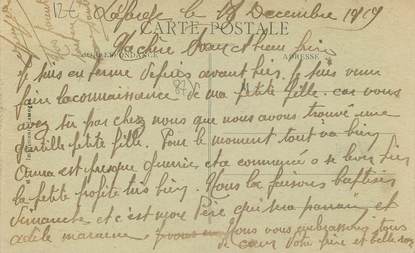 Labude le 18 Decembre 1919
CARTE POSTALE
CORRESPONDANCE
ADRESSE
Ma chère Sœur et beau frère
Je suis en ferme depuis avant hier. Je suis venu
faire la connaissance de ma petite fille. car vous
avez su par chez nous que nous avons trouvé une
gentille petite fille. Pour le moment tout va bien
est presque guerrie et a commencé a se lever hier
la petite profite très bien. Nous la faisons baptiser
Dimanche et c'est mon Père qui sera parrain et
Adèle marraine Nous vous embrassons tous
de cœur votre frère et belle sœur